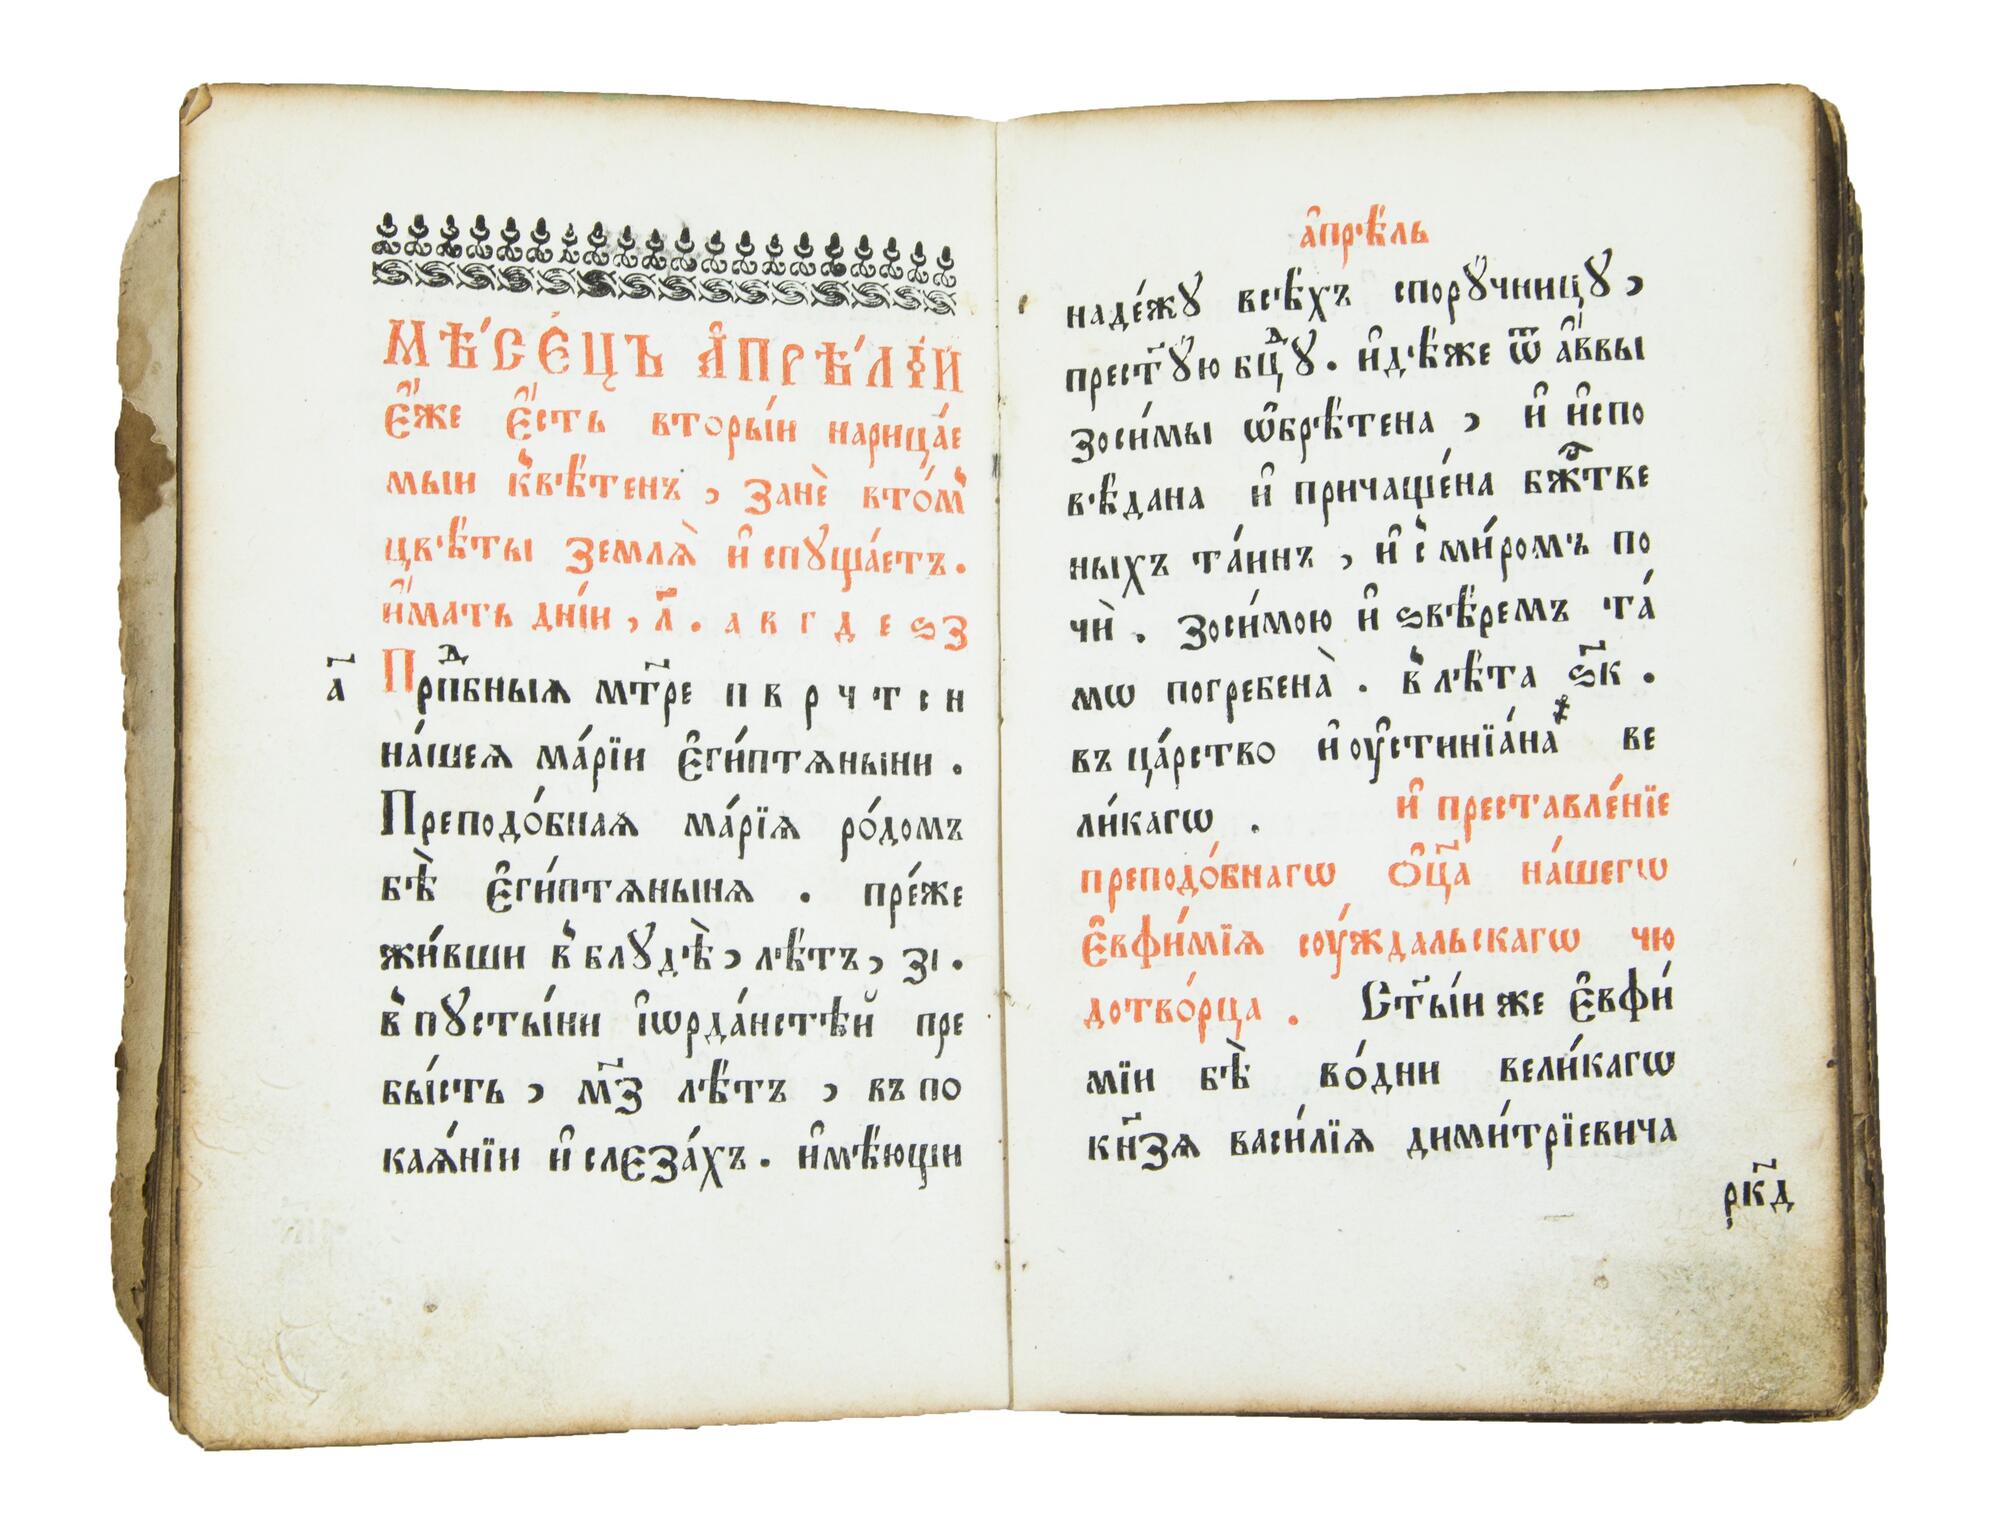 МѢ́СЕ́ЦЪ А҆ПРѢ́ЛІЙ
Е҆́же Е҆́сть вторы́и нарица́е
мыи к̾вѣ́тенъ, занѐ вто́м̾
цвѣ́ты землѧ̀ и҆спуща́етъ.
и҆́мать дні́и, л҃. а в г д е ѕ з
а҃ Прпⷣбныѧ мт҃ре п в р ч т с н
на́шеѧ ма́рїи Е҆ги́птѧныни.
Преподо́бнаѧ ма́рїѧ ро́домъ
бѣ̀ Е҆ги́птѧнынѧ. пре́же
жи́вши в̾блудѣ̀, лѣ́тъ, зі.
в̾пусты́ни і҆ѡрда́нстѣй пре
бы́сть, м҃з лѣ́тъ, въ по
каѧ́нїи и҆ слеза́хъ. и҆мѣ́ющи
а҆прѣ́ль
наде́жу всѣ́хъ спору́чницу,
прест҃у́ю бцⷣу. и҆дѣ́же ѿ а҆́ввы
зоси́мы ѡ҆брѣ́тена, и҆ и҆спо
вѣ́дана и҆ причаще́на бжⷭ҇тве
ныхъ та́инъ, и҆ с̾ ми́ромъ по
чѝ. зоси́мою и҆ ѕвѣ́ремъ та́
мѡ погребена̀. в̾ лѣ́та ѕ҃к.
въ ца́рство и҆оу́стинїа́на ве
ли́кагѡ. и҆ преставле́нїе
преподо́бнагѡ О҆ц҃а на́шегѡ
Е҆вфи́мїѧ соу́ждальскагѡ чю
дотво́рца. Ст҃ы́и же Е҆вфи́
мїи бѣ̀ во́дни вели́кагѡ
кн҃зѧ васи́лїѧ дими́трїевича
рк҃д